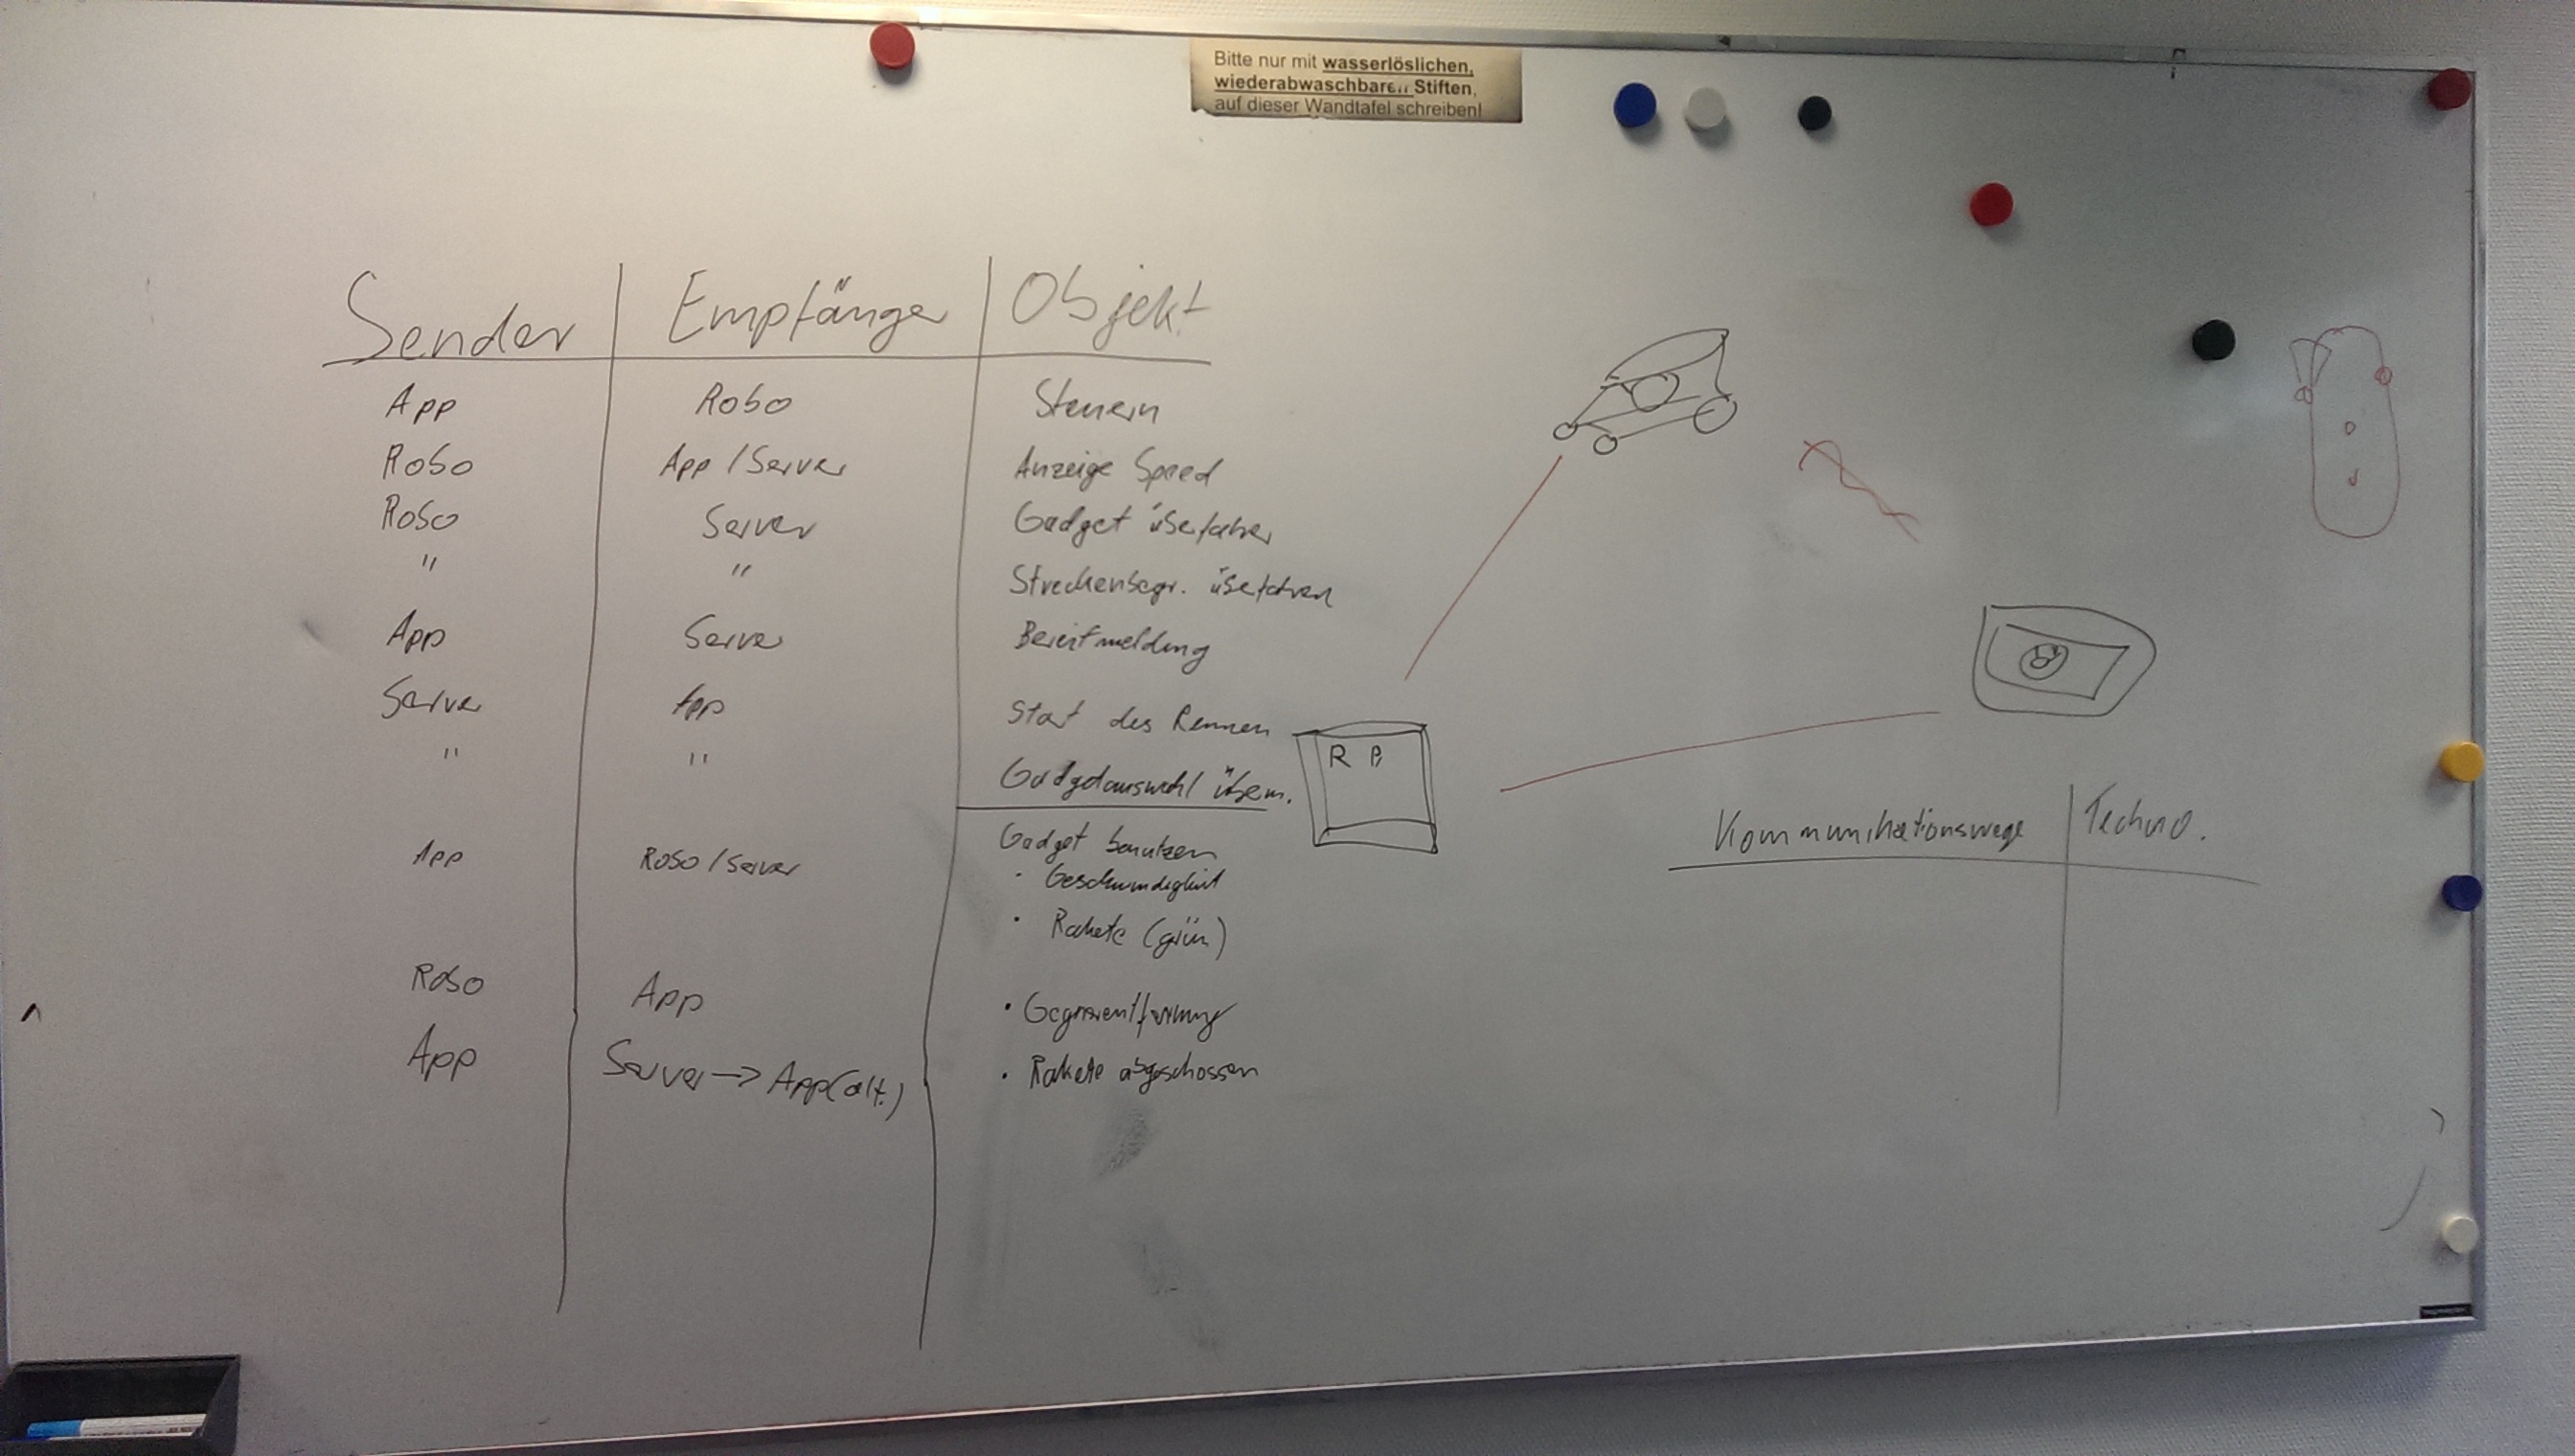 Bitte nur mit wasserlöslichen,
wiederabwaschbaren Stiften,
auf dieser Wandtafel schreiben!
Sender Empfänger Objekt
App Robo Steuern
Robo App / Server Anzeige Speed
Robo Server Gadget überfahren
" " Streckenbegr. überfahren
App Server Bereitmeldung
Server App Start des Rennen
" " Gadgetauswahl überm.
R B
App Robo / Server Gadget benutzen
· Geschwindigkeit
· Rakete (grün)
Robo App · Gegnerentfernung
App Server → App (alt.) · Rakete abgeschossen
Kommunikationswege Techno.